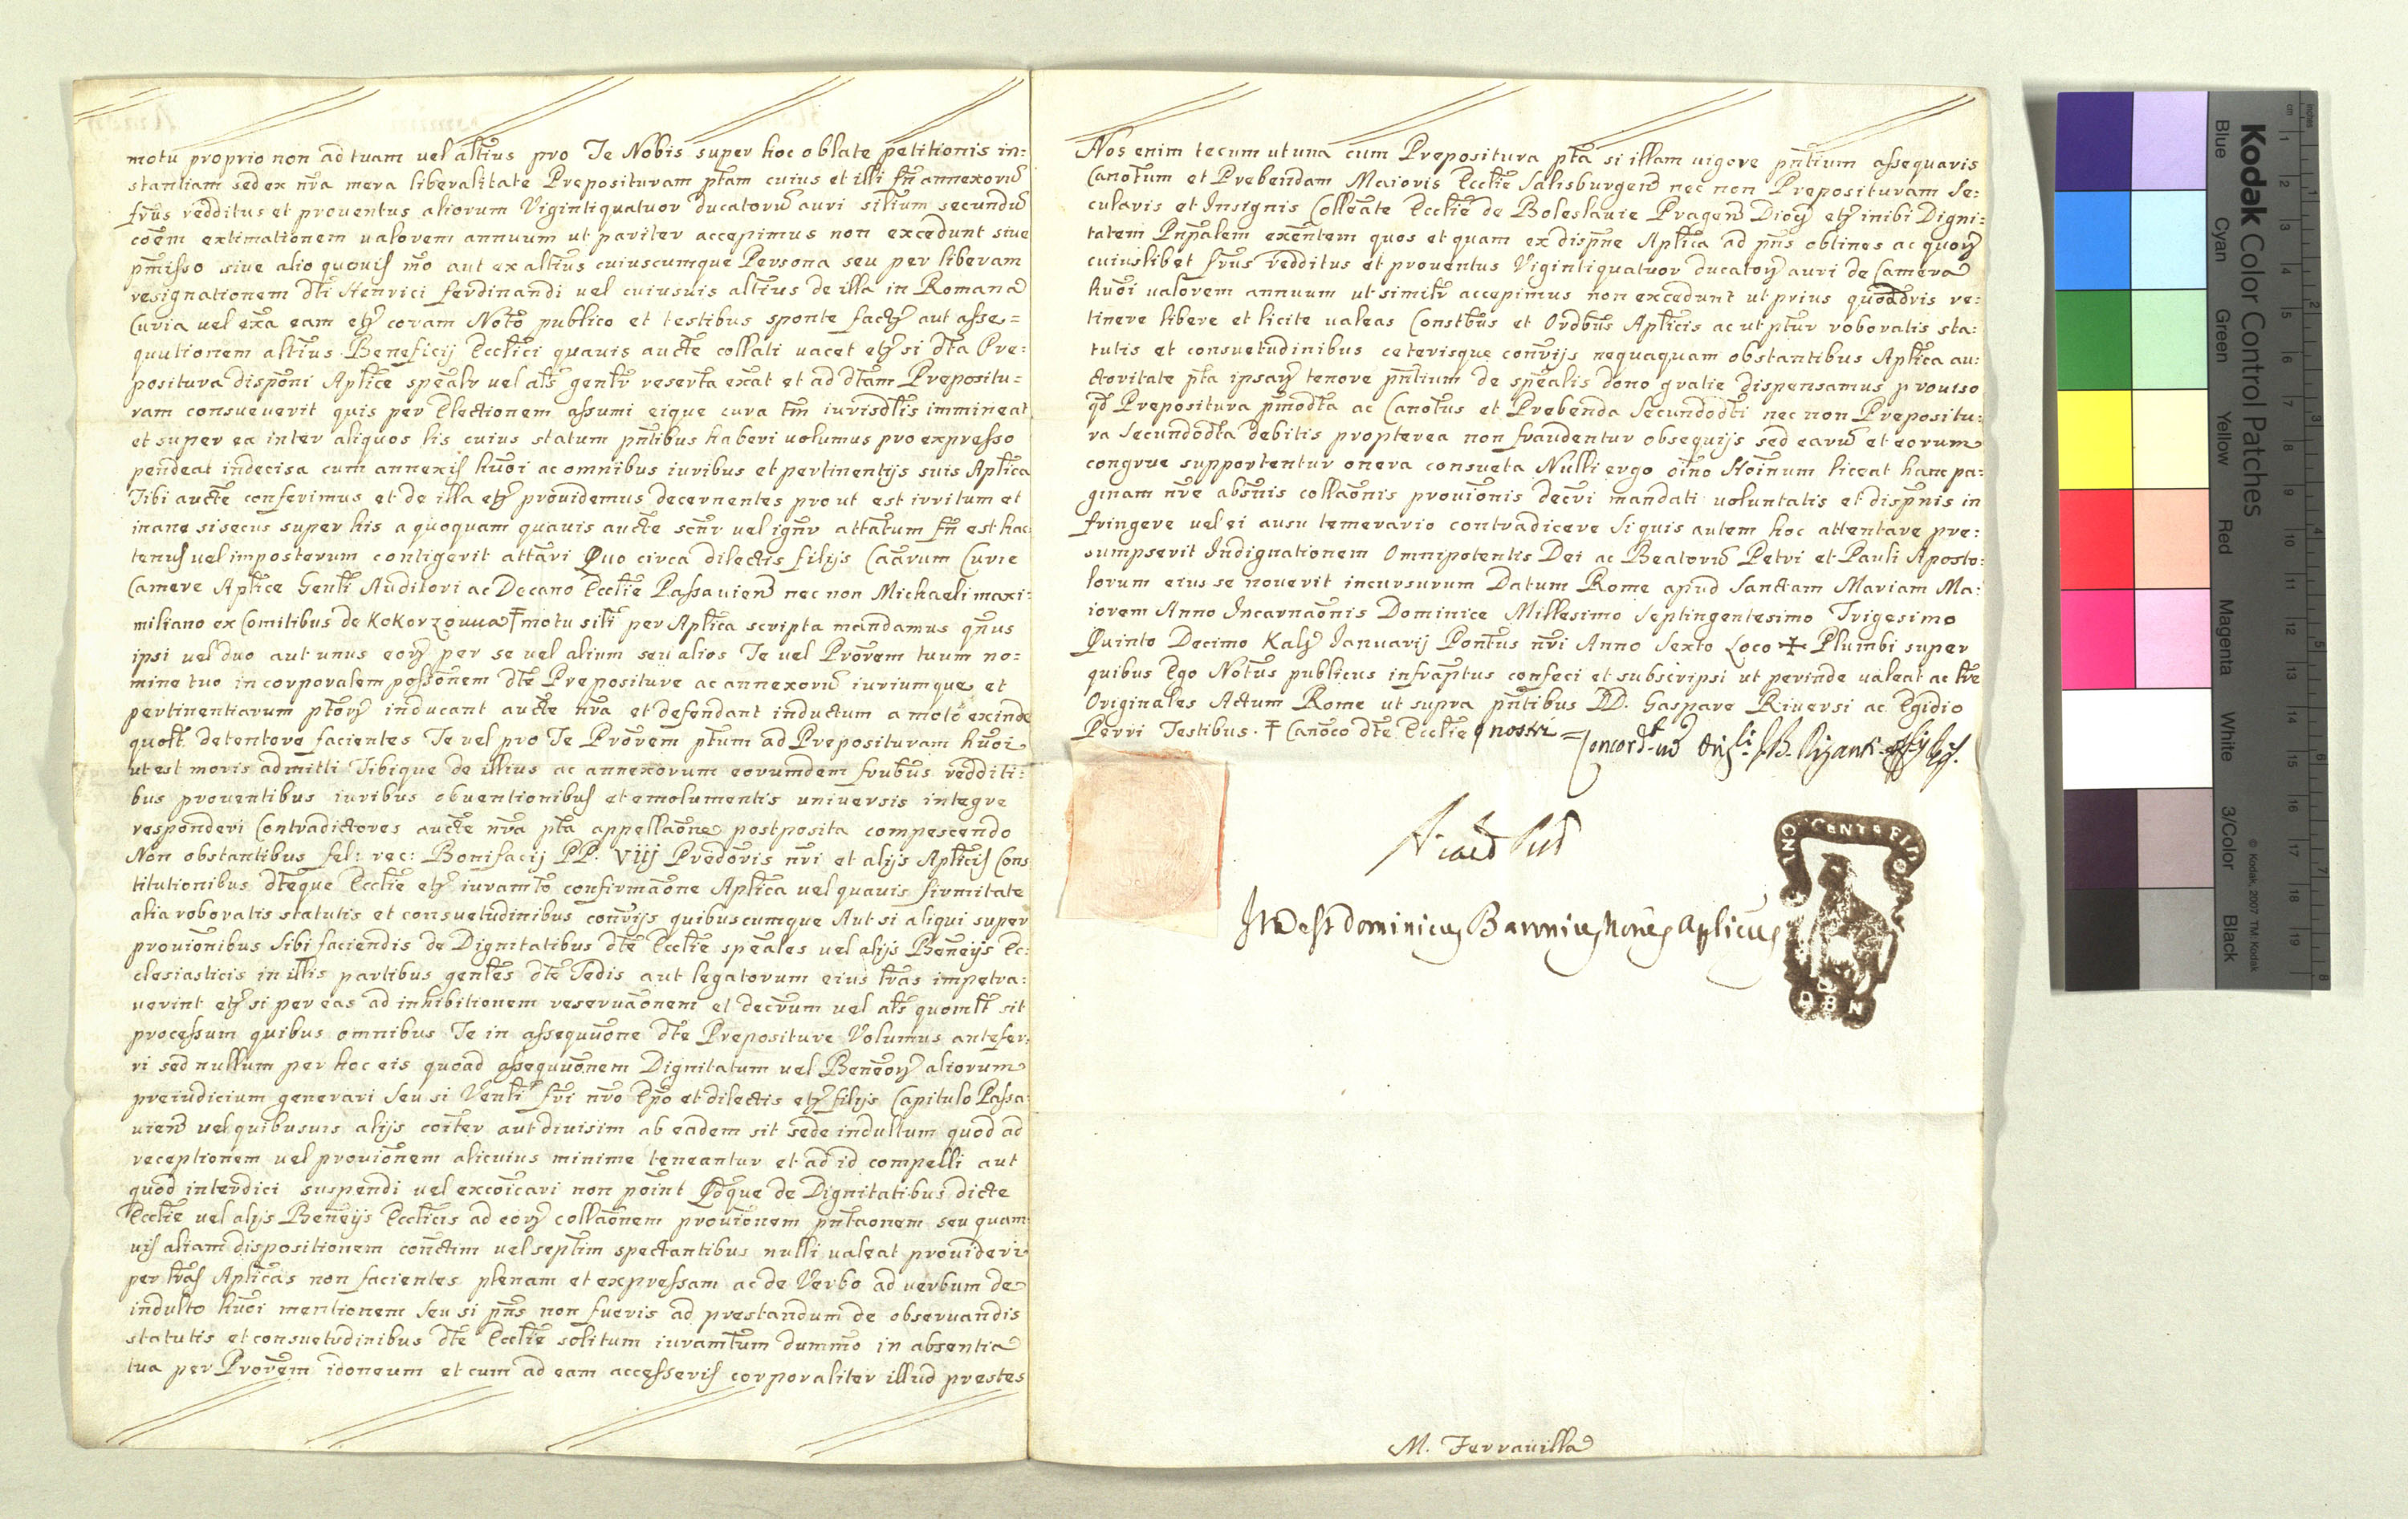 motu proprio non ad tuam vel alt̃ius pro Te Nobis super hoc oblate petitionis in=
stantiam sed ex nr̃a mera liberalitate Preposituram pt̃am cuius et illi fñ annexorũ
frũs redditus et proventus aliorum Vigintiquatuor ducatorũ auri sil̃ium secundũ
coẽm extimationem valorem annuum ut pariter accepimus non excedunt sive
pm̃isso sive alio quovis mõ aut ex alt̃ius cuiuscumque Persona seu per liberam
resignationem dt̃i Henrici ferdinandi vel cuiusvis alt̃ius de illa in Romana
Curia vel ex̃a eam etȝ coram Notõ publico et testibus sponte factȝ aut asse=
quutionem alt̃ius Beneficij Eccl̃ici quavis auct̃e collati vacet etȝ si dt̃a Pre=
positura dispõni Apl̃ice speãlr vel al̃s gent̃r reserṽa ex̃at et ad dt̃am Prepositu=
ram consueverit quis per Electionem assumi eique cura tm̃ iurisdt̃is immineat
et super ea inter aliquos lis cuius statum pñtibus haberi volumus pro expresso
pendeat indecisa cum annexis hũoi ac omnibus iuribus et pertinentijs suis Apl̃ica
Tibi auct̃e conferimus et de illa etȝ providemus decernentes prout est irritum et
inane si secus super his a quoquam quavis auct̃e scñr vel igñr att̃atum fñ est hac
tenus vel imposterum contigerit att̃ari Quo circa dilectis filijs Caãrum Curie
Camere Apl̃ice Genl̃i Auditori ac Decano Eccl̃ie Passavieñ nec non Michaeli maxi=
miliano ex Comitibus de Kokorzouua ‡ motu sil̃i per Apl̃ica scripta mandamus qñus
ipsi vel duo aut unus eorȝ per se vel alium seu alios Te vel Prõrem tuum no=
mine tuo in corporalem possõnem dt̃e Prepositure ac annexorũ iuriumque et
pertinentiarum pt̃orȝ inducant auct̃e nr̃a et defendant inductum amotõ exinde
quol̃t detentore facientes Te vel pro Te Prõrem pt̃um ad Preposituram hũoi
ut est moris admitti Tibique de illius ac annexorum eorumdem frub̃us redditi=
bus proventibus iuribus obventionibus et emolumentis universis integre
responderi Contradictores auct̃e nr̃a pt̃a appellaõne postposita compescendo
Non obstantibus fel: rec: Bonifacij PP. viij Predõris nr̃i et alijs Apl̃icis Cons
titutionibus dt̃eque Eccl̃ie etȝ iuramt̃o confirmaõne Apl̃ica vel quavis firmitate
alia roboratis statutis et consuetudinibus cont̃rijs quibuscumque Aut si aliqui super
proviõnibus sibi faciendis de Dignitatibus dt̃e Eccl̃ie speãles vel alijs Beneĩjs Ec=
clesiasticis in illis partibus genl̃es dt̃e Sedis aut legatorum eius lr̃as impetra=
verint etȝ si per eas ad inhibitionem reservaõnem et decr̃um vel al̃s quoml̃t sit
processum quibus omnibus Te in assequuõne dt̃e Prepositure Volumus antefer=
ri sed nullum per hoc eis quoad assequuõnem Dignitatum vel Beneõrȝ aliorum
preiudicium generari Seu si Venl̃i fr̃i nr̃o Ep̃o et dilectis etȝ filijs Capitulo Passa
vieñ vel quibusvis alijs coĩter aut divisim ab eadem sit sede indultum quod ad
receptionem vel proviõnem alicuius minime teneantur et ad id compelli aut
quod interdici suspendi vel excoĩcari non poĩnt Qd̃que de Dignitatibus dicte
Eccl̃ie vel alijs Beneĩjs Eccl̃icis ad eorȝ collaõnem proviõnem pñtaonem seu quam
vis aliam dispositionem conct̃im vel sept̃im spectantibus nulli valeat provideri
per lr̃as Apl̃icas non facientes plenam et expressam ac de Verbo ad verbum de
indulto hũoi mentionem Seu si pñs non fueris ad prestandum de observandis
statutis et consuetudinibus dt̃e Eccl̃ie solitum iuramt̃um dummõ in absentia
tua per Prõrem idoneum et cum ad eam accesseris corporaliter illud prestes
Nos enim tecum ut una cum Prepositura pt̃a si illam vigore pñtium assequaris
Canot̃um et Prebendam Maioris Eccl̃ie Salisburgeñ nec non Preposituram Se=
cularis et Insignis Colleãte Eccl̃ie de Boleslavie Prageñ Dioc̃ etȝ inibi Digni=
tatem Pnp̃alem exeñtem quos et quam ex dispñe Apl̃ica ad pñs obtines ac quorȝ
cuiuslibet frũs redditus et proventus Vigintiquatuor ducatorȝ auri de Camera
hũoi valorem annuum ut simil̃r accepimus non excedunt ut prius quoad̃vis re=
tinere libere et licite valeas Constb̃us et Ordb̃us Apl̃icis ac ut pt̃ur roboratis sta=
tutis et consuetudinibus ceterisque cont̃rijs nequaquam obstantibus Apl̃ica au=
ctoritate pt̃a ipsarȝ tenore pñtium de speãlis dono gratie dispensamus proviso
qd̃ Prepositura pm̃odt̃a ac Canot̃us et Prebenda Secundodt̃i nec non Prepositu=
ra Secundodt̃a debitis propterea non fraudentur obsequijs sed earũ et eorum
congrue supportentur onera consueta Nulli ergo oĩno Hoĩnum liceat hanc pa=
ginam nr̃e absnĩs collaõnis proviõnis decr̃i mandati voluntatis et dispñis in
fringere vel ei ausu temerario contradicere Si quis autem hoc attentare pre=
sumpserit Indignationem Omnipotentis Dei ac Beatorũ Petri et Pauli Aposto=
lorum eius se noverit incursurum Datum Rome apud Sanctam Mariam Ma=
iorem Anno Incarnaõnis Dominice Millesimo Septingentesimo Trigesimo
Quinto Decimo Kalȝ Januarij Pont̃us nr̃i Anno Sexto Loco ✠ Plumbi super
quibus Ego Not̃us publicus infrap̃tus confeci et subscripsi ut perinde valeat ac lr̃e
Originales Actum Rome ut supra pñtibus DD. Gaspare Riversi ac Egidio
Perri Testibus. ‡ Canõco dt̃e Eccl̃ie
Ita est Dominicus Baronius Not̃us Aplicus
D B N
M. Ferravilla